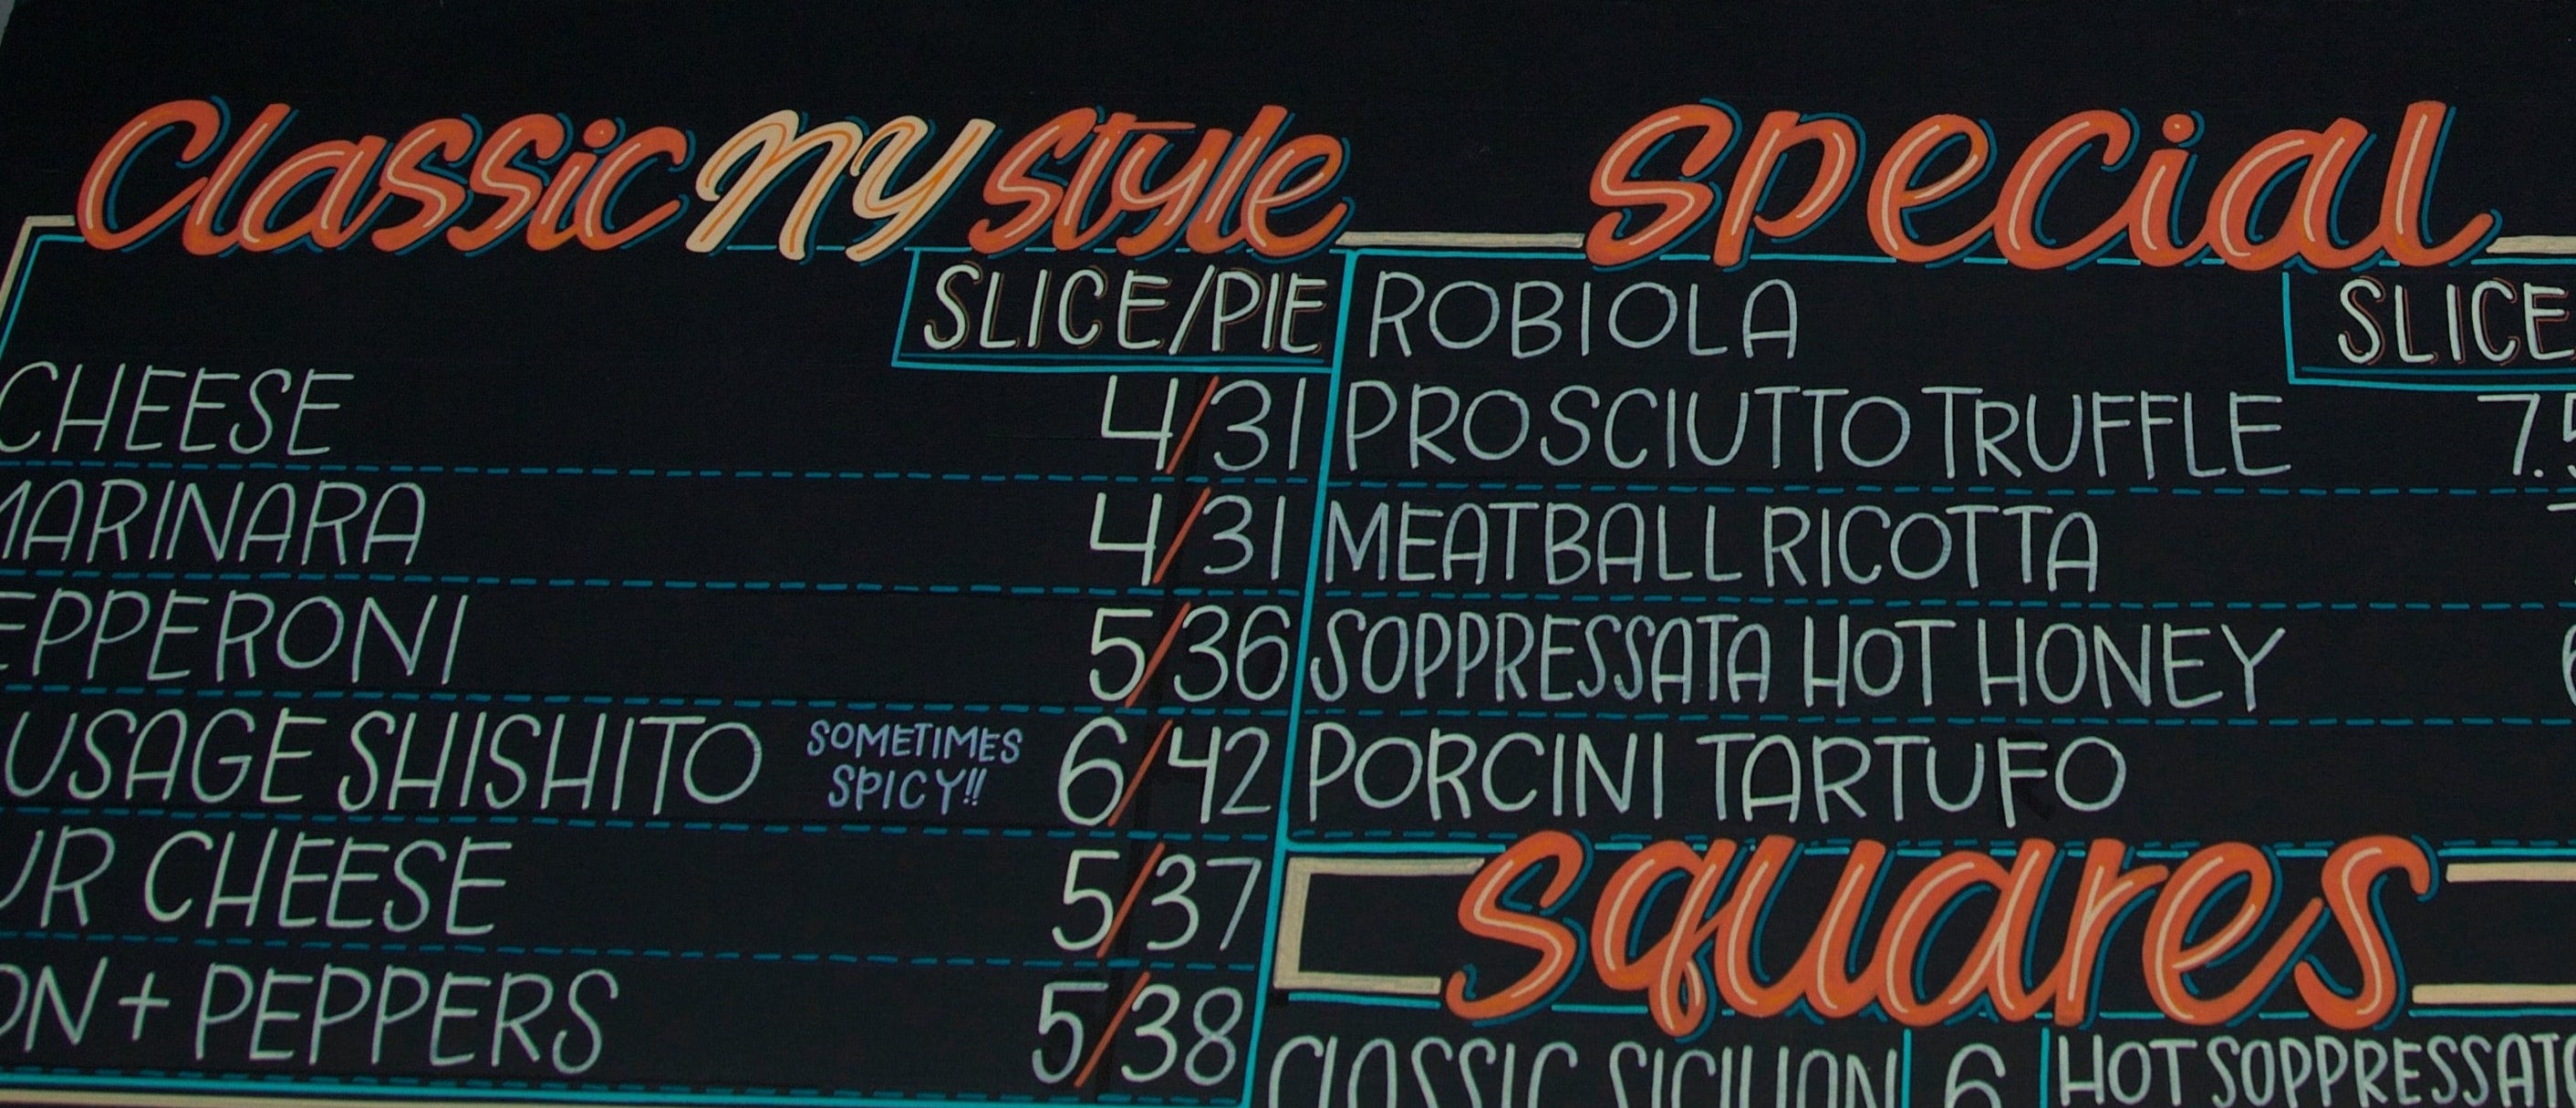 Classic NY Style
SLICE/PIE
CHEESE 4/31
MARINARA 4/31
EPPERONI 5/36
USAGE SHISHITO SOMETIMES SPICY!! 6/42
UR CHEESE 5/37
ON + PEPPERS 5/38
Special
SLICE
ROBIOLA
PROSCIUTTO TRUFFLE 7.5
MEATBALL RICOTTA
SOPPRESSATA HOT HONEY 6
PORCINI TARTUFO
Squares
CLASSIC SICILIAN 6
HOT SOPPRESSATA